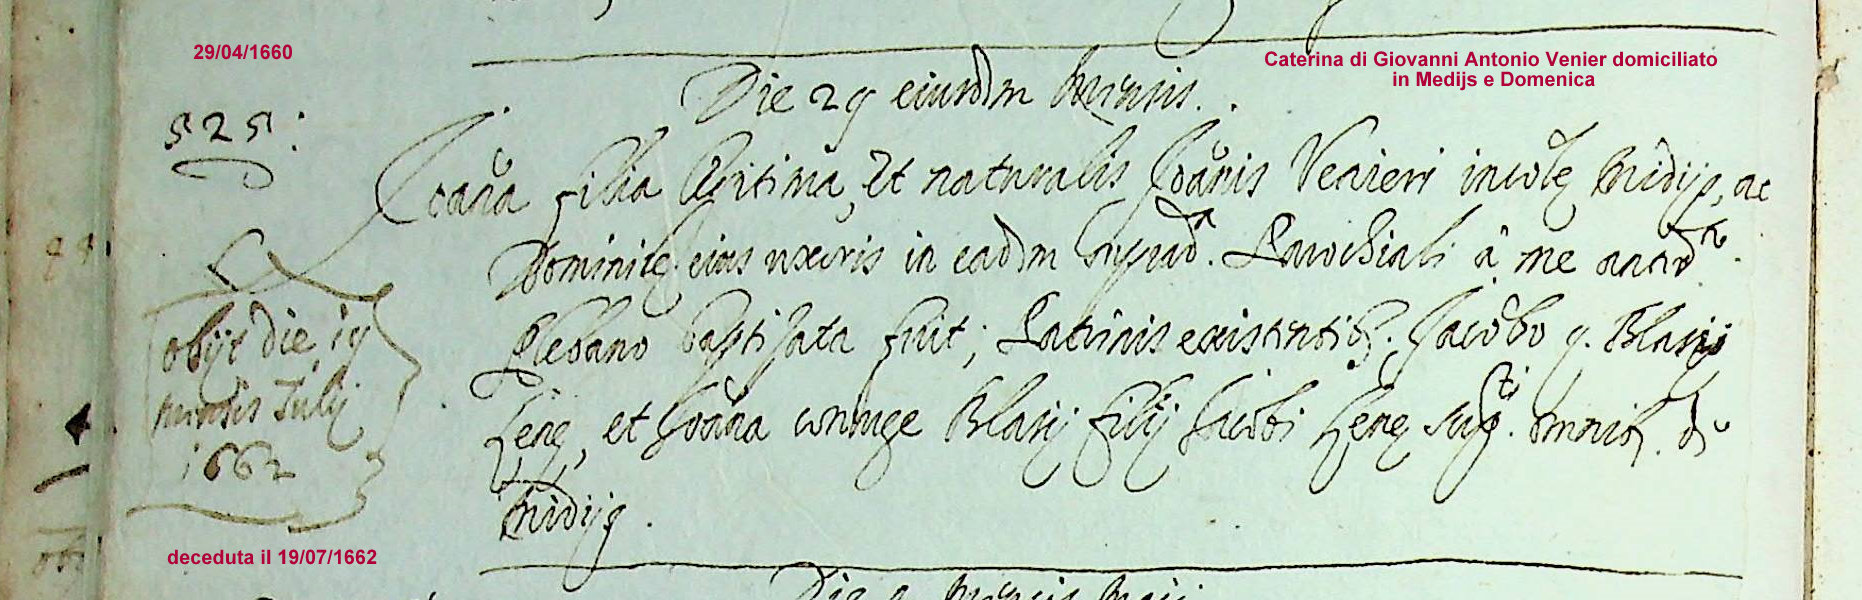 29/04/1660
Caterina di Giovanni Antonio Venier domiciliato
in Medijs e Domenica
Die 29 eiusdm mensis.
525:
Ioãna filia legitima, et naturalis Ioãnis Venieri incolę Medijs, ac
Dominicę eius uxoris in eadm Parochiali à me
Plebano baptisata fuit; Patrinis existentib; Iacobo q. Blasij
Lenę, et Ioãna coniuge Blasij filij Iacobi Lenę de
Medijs.
obijt die 19
mensis Iulij
1662
deceduta il 19/07/1662
Die mensis Maij